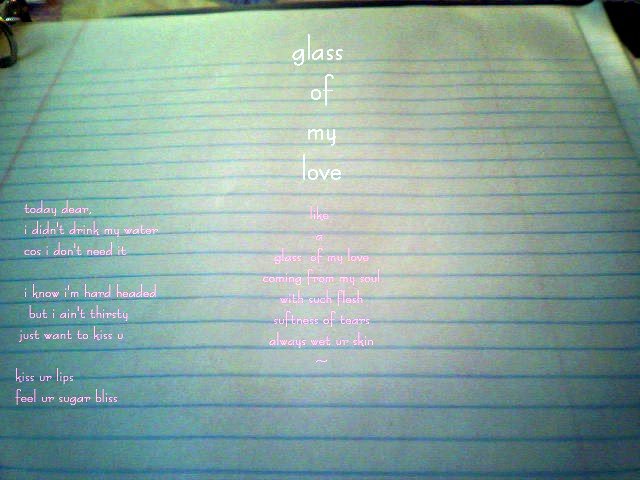 glass
of
my
love
today dear,
i didn't drink my water
cos i don't need it
i know i'm hard headed
but i ain't thirsty
just want to kiss u
kiss ur lips
feel ur sugar bliss
like
a
glass of my love
coming from my soul
with such flesh
suftness of tears
always wet ur skin
~